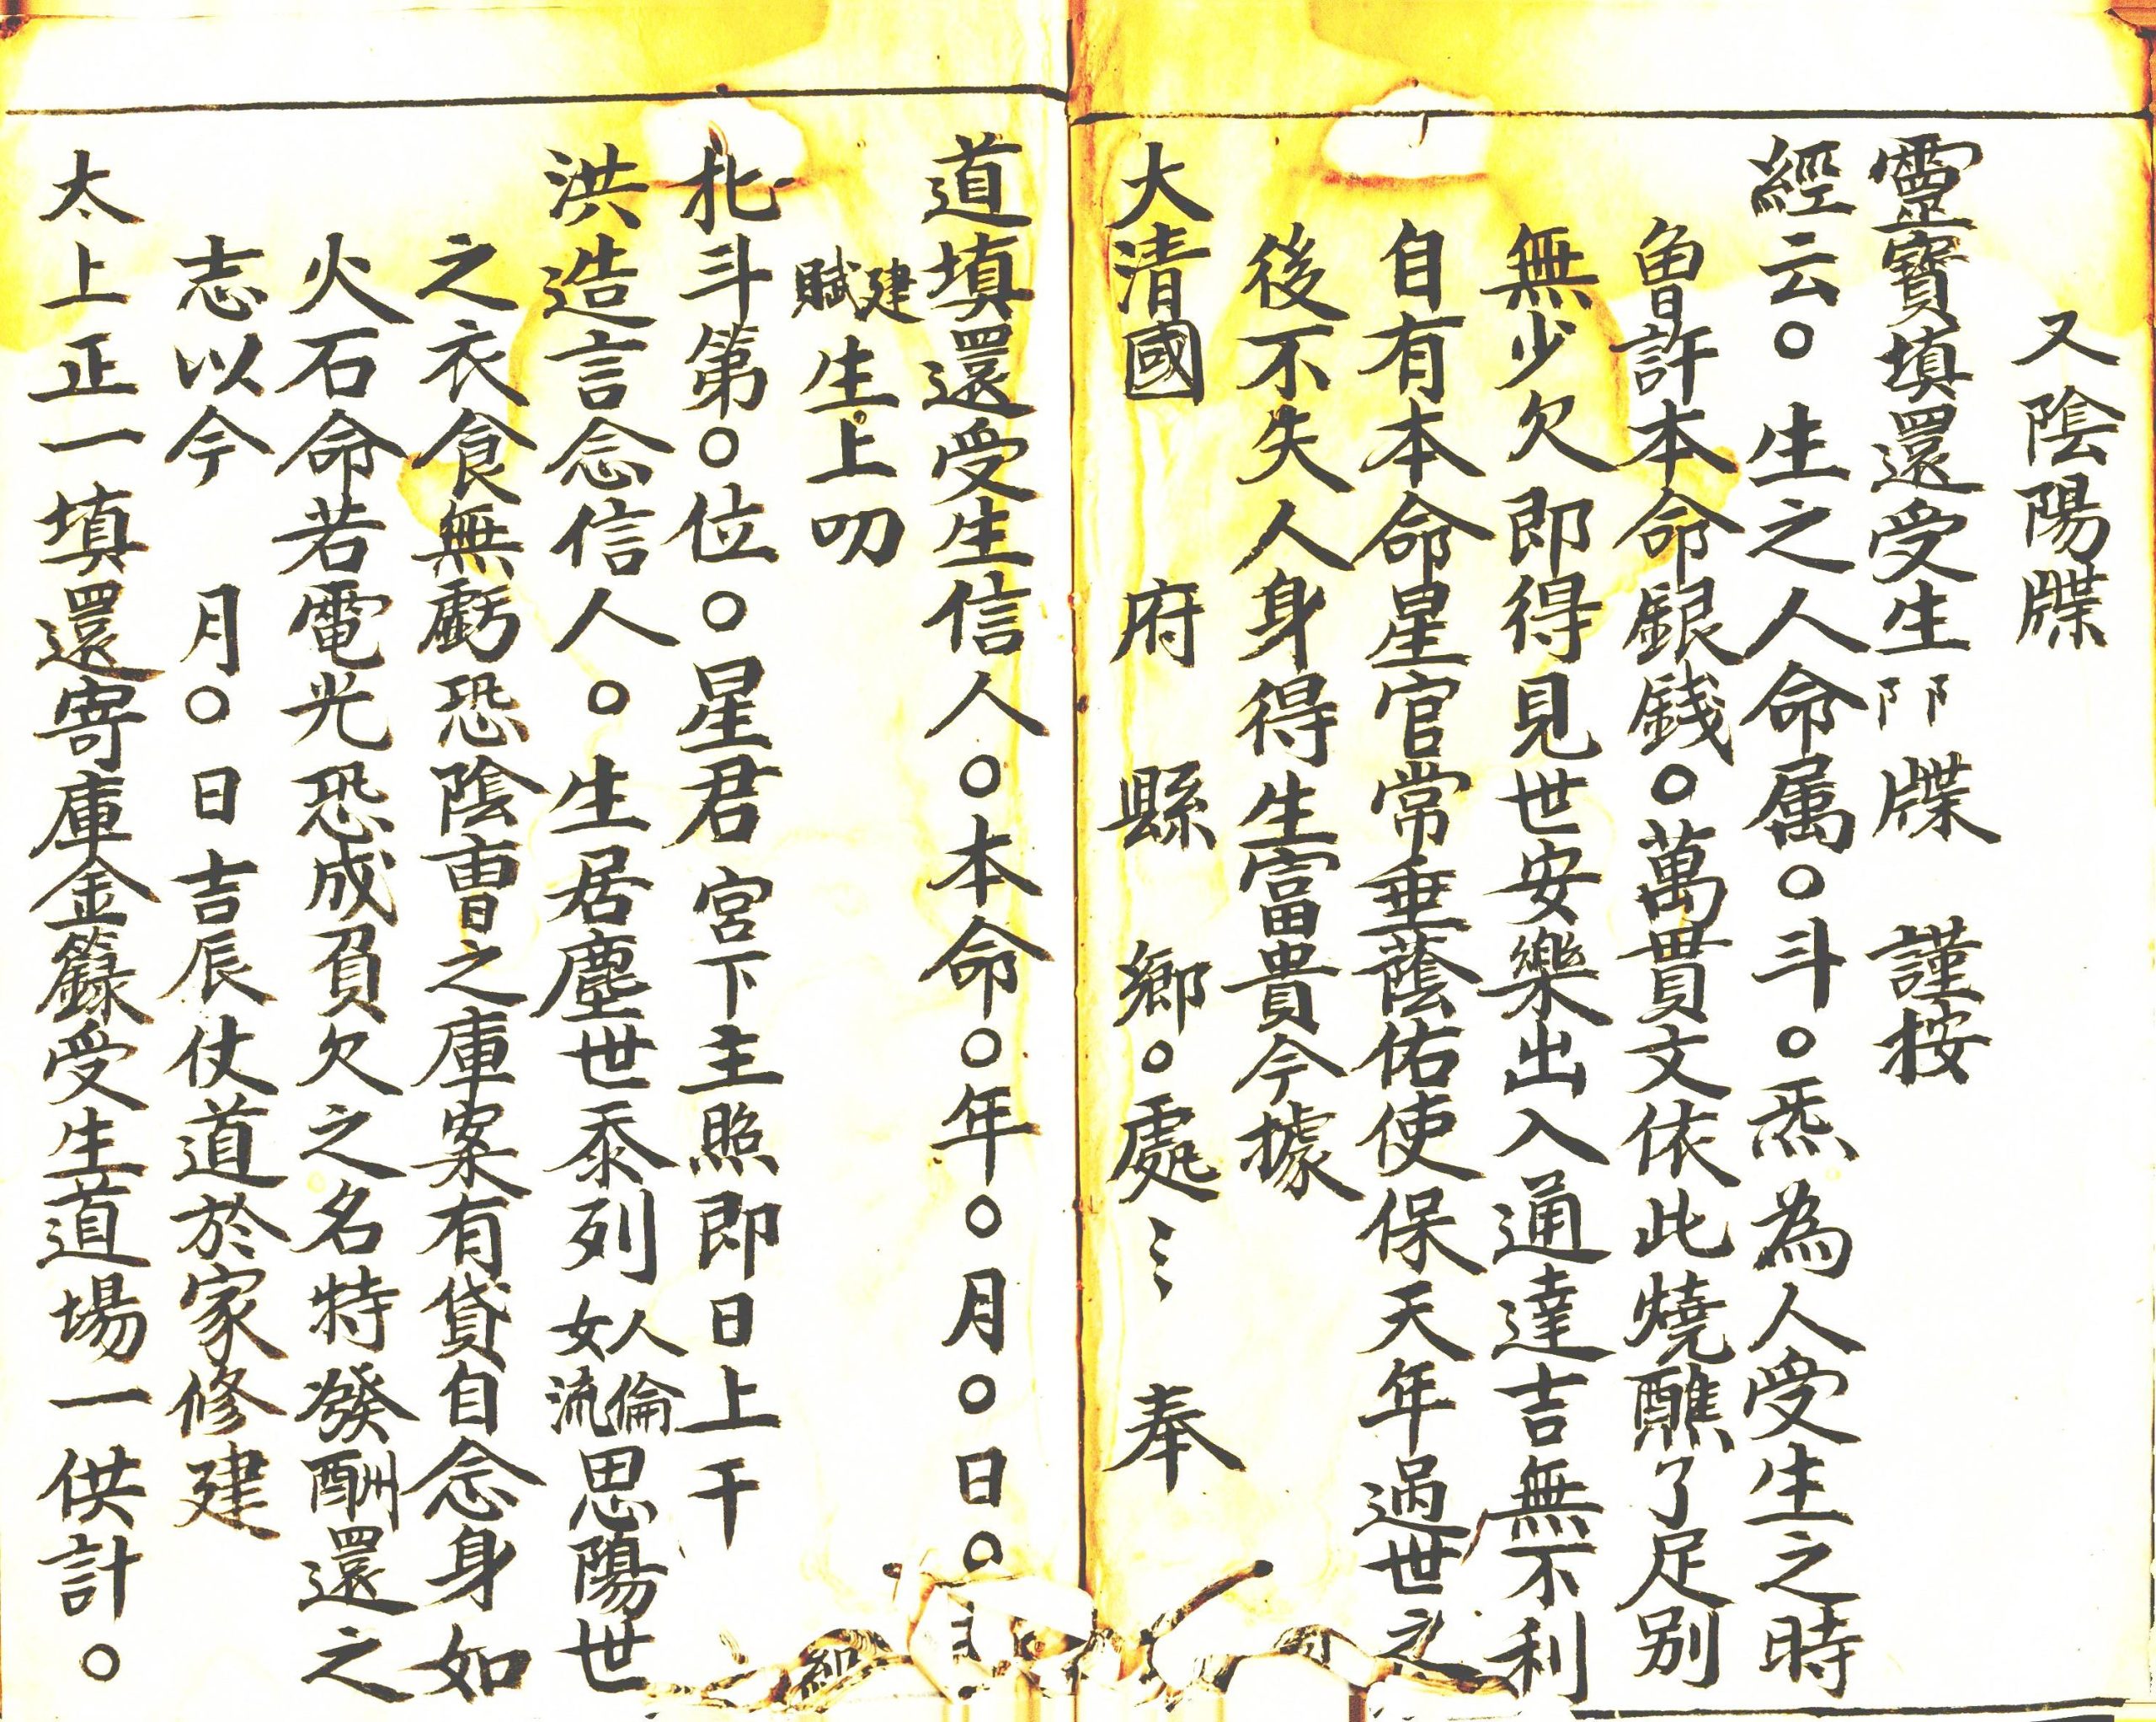 又陰陽牒
靈寶填還受生卩卩牒 謹按
經云○生之人命属○斗○炁為人受生之時
曾許本命銀錢○萬貫文依此燒醮了足別
無少欠即得見世安樂出入通達吉無不利
自有本命星官常垂蔭佑使保天年過世之
後不失人身得生富貴今據
大清國 府 縣 鄉○處ミミ 奉
道填還受生信人○本命○年○月○日○
建賦生上叨
北斗第○位○星君宮下主照即日上干
洪造言念信人○生居塵世忝列人倫女流思陽世
之衣食無虧恐陰曹之庫案有貸自念身如
火石命若電光恐成負欠之名特發酬還之
志以今 月○日吉辰仗道於家修建
太上正一填還寄庫金籙受生道場一供計○